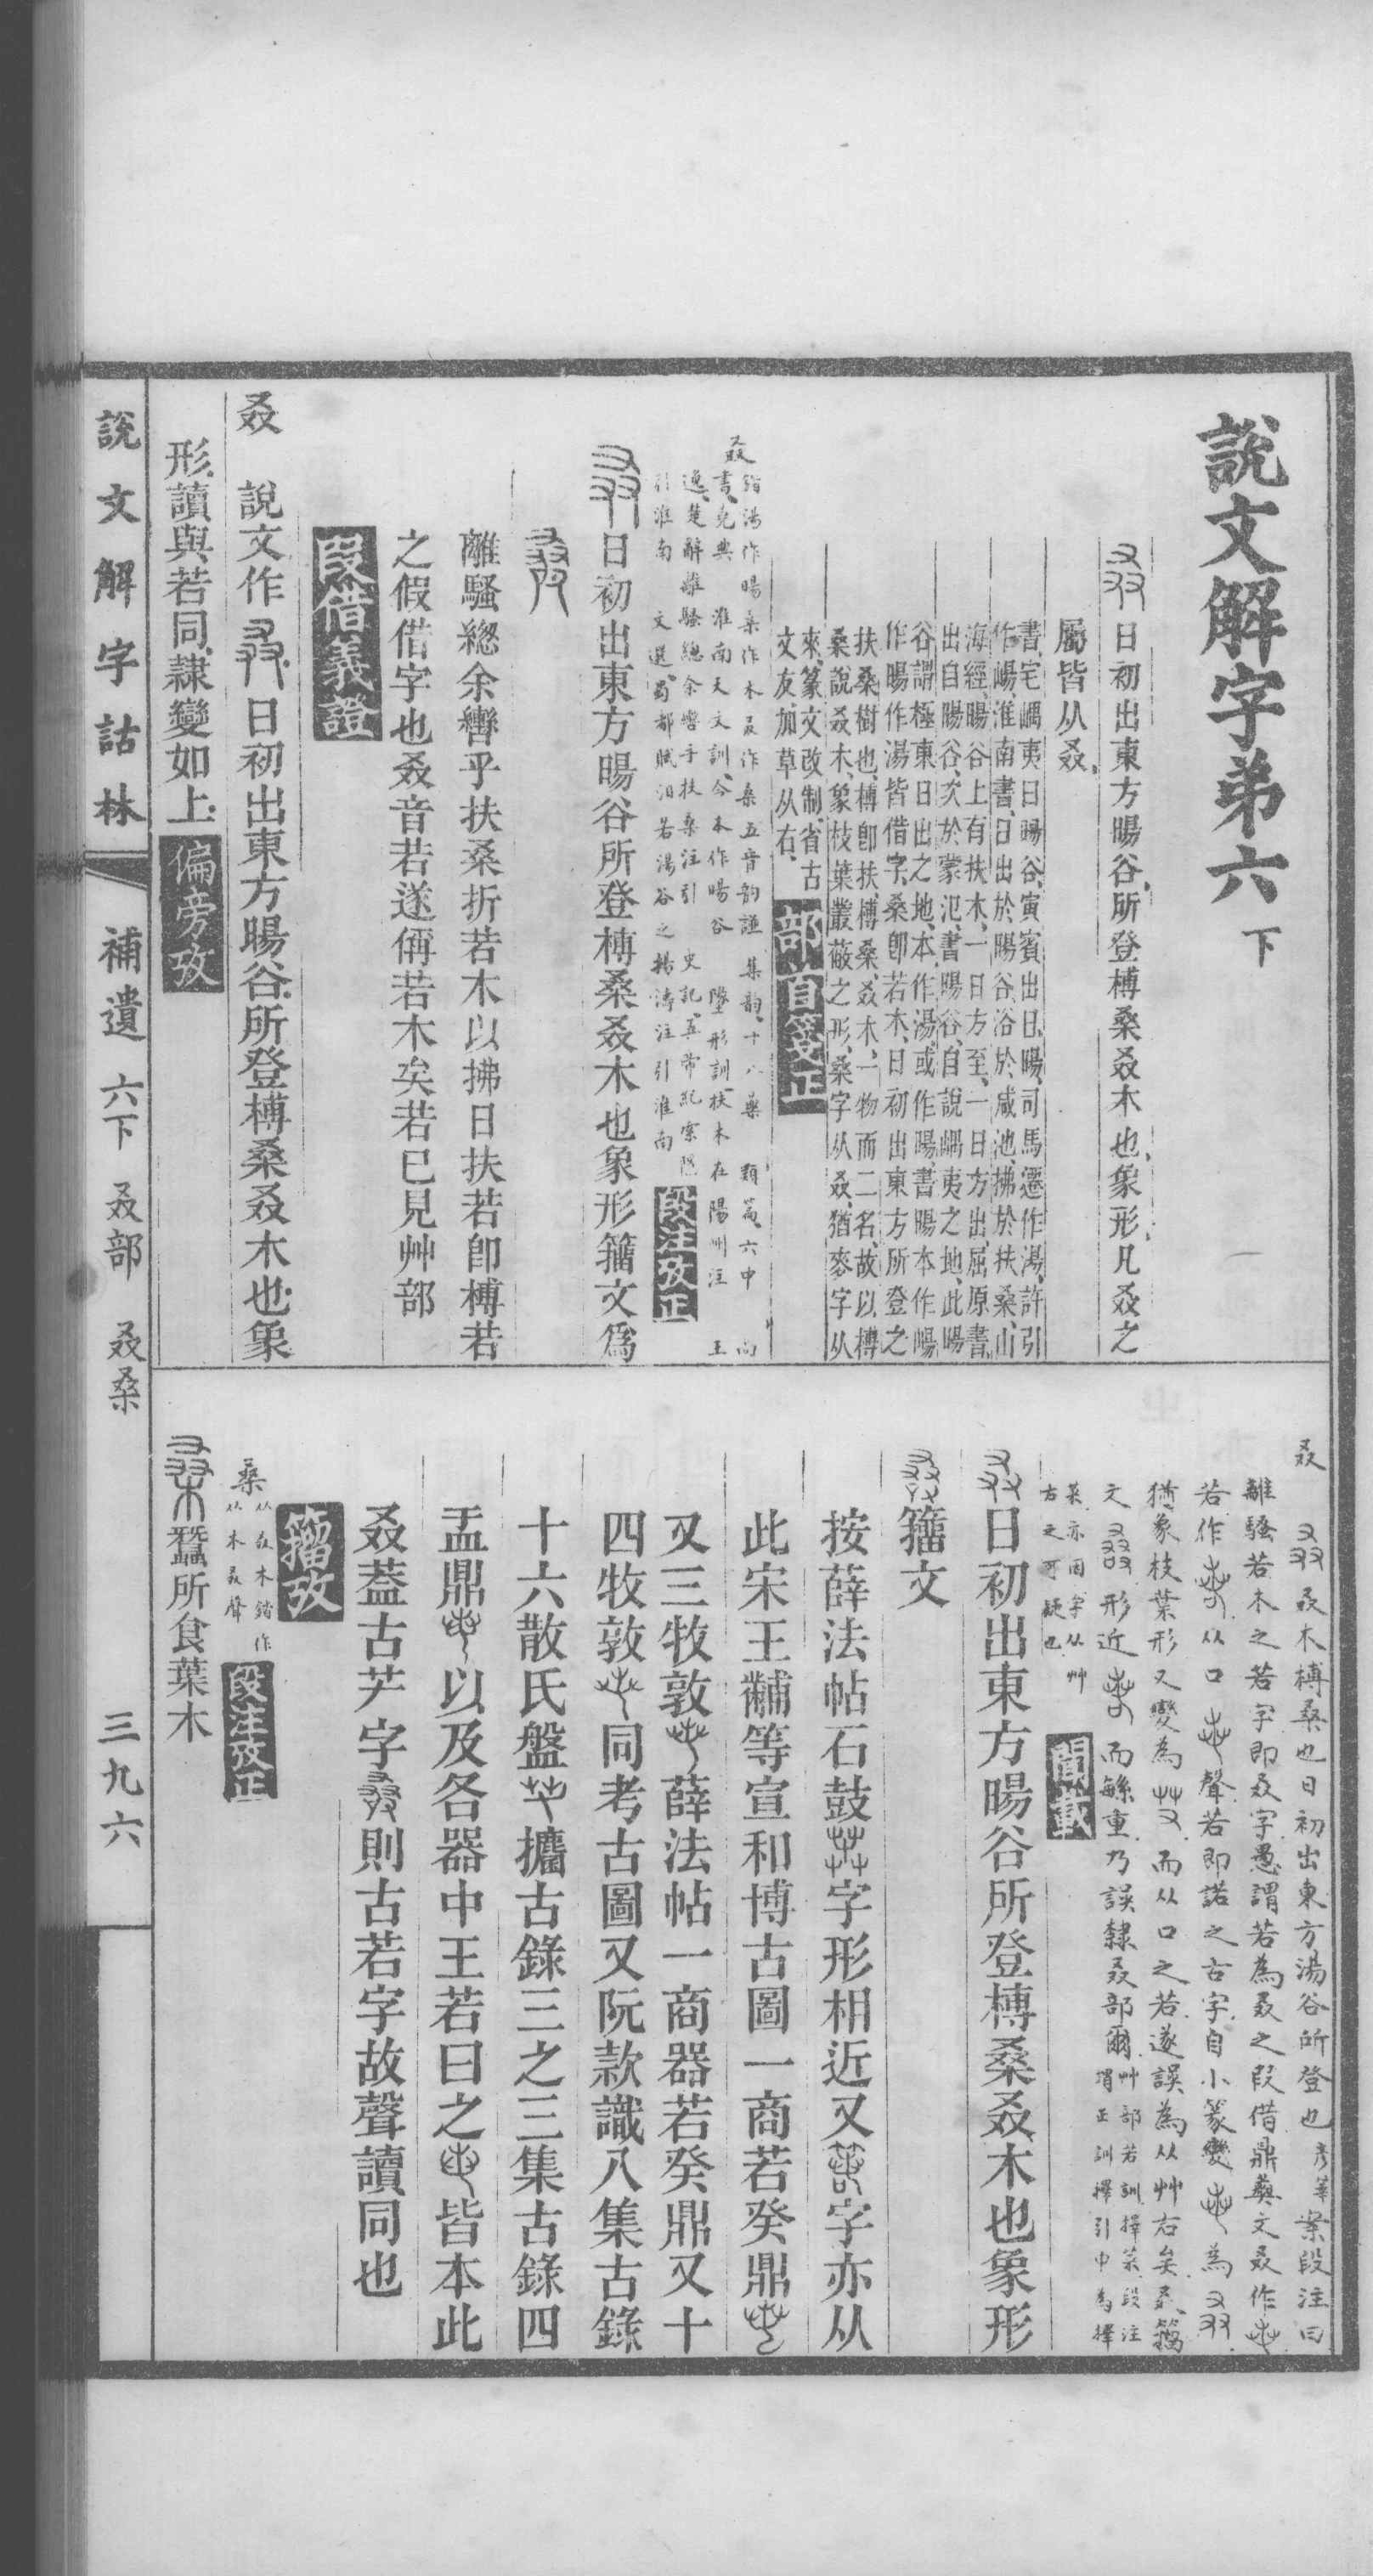 說文解字弟六下
日初出東方暘谷所登榑桑叒木也象形凡叒之
屬皆从叒
書宅嵎夷曰暘谷寅賓出日暘司馬遷作湯許引
作崵淮南書日出於暘谷浴於咸池拂於扶桑山
海經暘谷上有扶木一日方至一日方出屈原書
出自暘谷次於蒙汜書暘谷自說嵎夷之地此暘
谷謂極東日出之地本作湯或作暘書暘本作崵
作暘作湯皆借字桑卽若木日初出東方所登之
扶桑樹也榑卽扶榑桑叒木一物而二名故以榑
桑說叒木象枝葉叢蔽之形桑字从叒猶麥字从
來篆文改制省古
文友加草从右
部首箋正
叒
鍇湯作暘桑作木叒作桑五音韵譜集韵十八藥類篇六中尚
書堯典淮南天文訓今本作暘谷墬形訓扶木在陽州注王
逸楚辭離騷總余轡乎扶桑注引史記五帝紀索隱
引淮南文選蜀都賦汨若湯谷之揚濤注引淮南
段注攷正
日初出東方暘谷所登榑桑叒木也象形籒文爲
離騷總余轡乎扶桑折若木以拂日扶若卽榑若
之假借字也叒音若遂偁若木矣若已見艸部
叚借義證
叒
說文作日初出東方暘谷所登榑桑叒木也象
形讀與若同隷變如上
偏旁攷
叒
叒木榑桑也日初出東方湯谷所登也彥華案段注曰
離騷若木之若字卽叒字愚謂若為叒之叚借鼎彝文叒作
若作从口聲若即諾之古字自小篆變為
猶象枝葉形又變為而从口之若遂誤為从艸右矣叒籒
文形近而緐重乃誤隸叒部爾艸部若訓擇菜段注
謂正訓擇引申為擇
菜亦因字从艸
右之可疑也
閒載
日初出東方暘谷所登榑桑叒木也象形
籒文
按薛法帖石鼓字形相近又字亦从
此宋王黼等宣和博古圖一商若癸鼎
又三牧敦薛法帖一商器若癸鼎又十
四牧敦同考古圖又阮款識八集古錄
十六散氏盤攈古錄三之三集古錄四
盂鼎以及各器中王若曰之皆本此
叒蓋古芓字則古若字故聲讀同也
籒攷
桑
从叒木鍇作
从木叒聲
段注攷正
蠶所食葉木
說文解字詁林
補遺 六下 叒部 叒桑
三九六